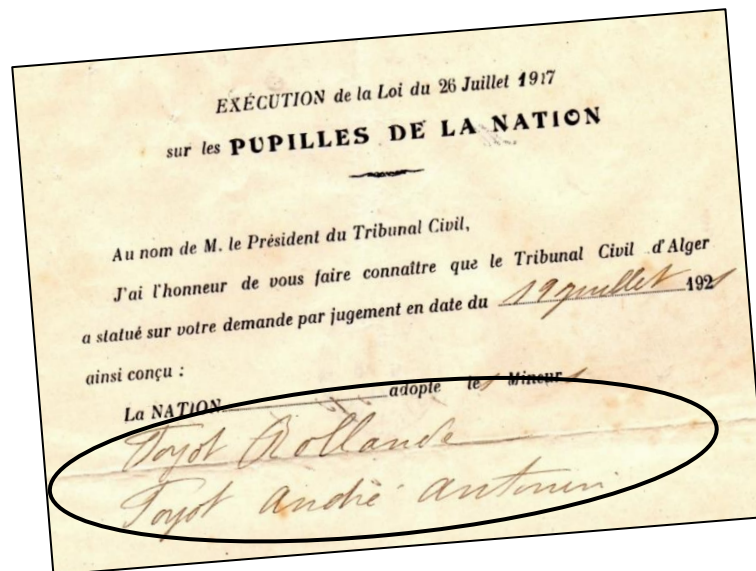 EXÉCUTION de la Loi du 26 Juillet 1917
sur les PUPILLES DE LA NATION
Au nom de M. le Président du Tribunal Civil,
J'ai l'honneur de vous faire connaître que le Tribunal Civil d'Alger
a statué sur votre demande par jugement en date du 19 juillet 1921
ainsi conçu :
La NATION adopte les Mineurs
Rollande
André Antonin